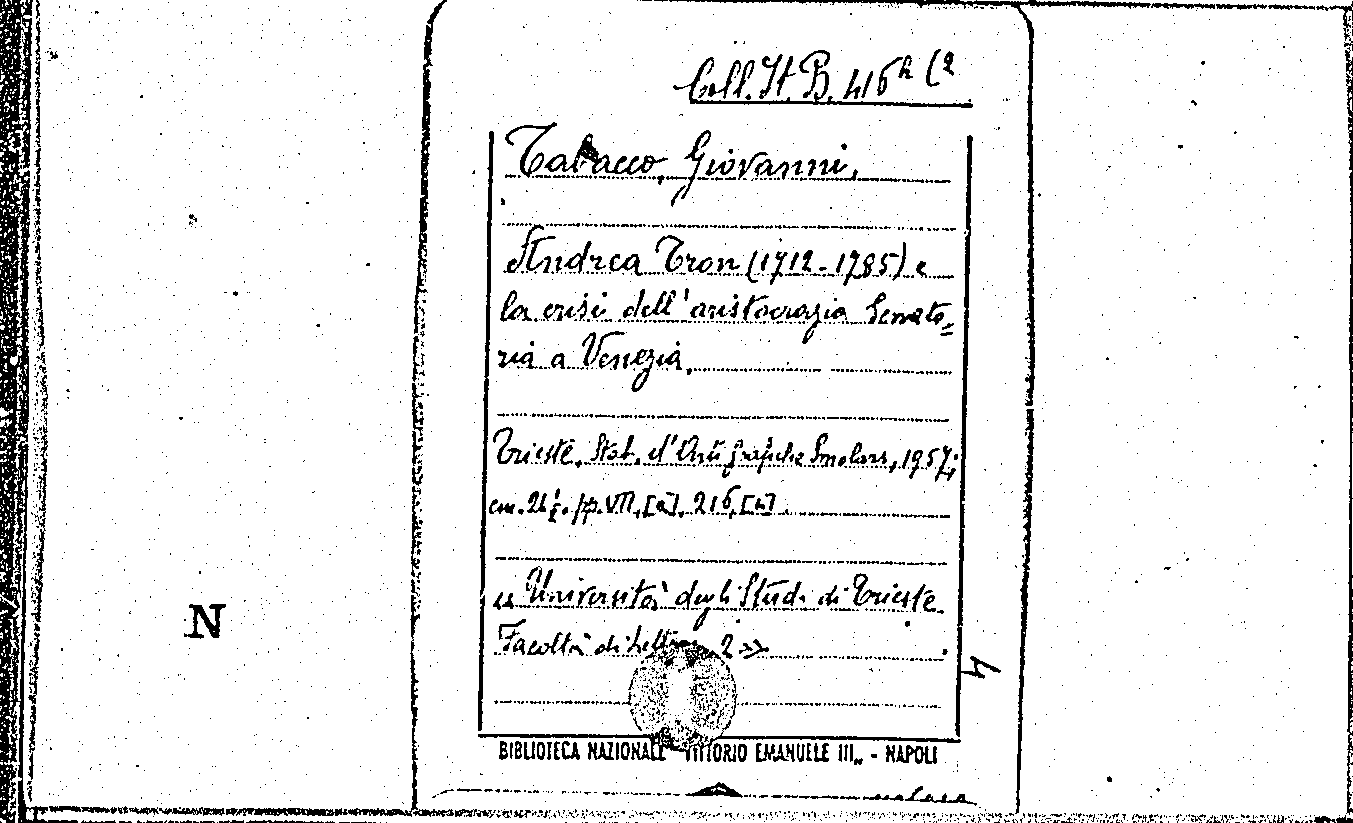 Coll. It. B. 416 h (2
Tabacco, Giovanni.
Andrea Tron (1712-1785) e
la crisi dell'aristocrazia Senato=
ria a Venezia.
Trieste, Stab. d'Arti grafiche Smolars, 1957;
cm. 24½. pp. VII, [a], 216, [4].
«Università degli Studi di Trieste.
Facoltà di Lettere 2».
4
N
BIBLIOTECA NAZIONALE "VITTORIO EMANUELE III„ - NAPOLI